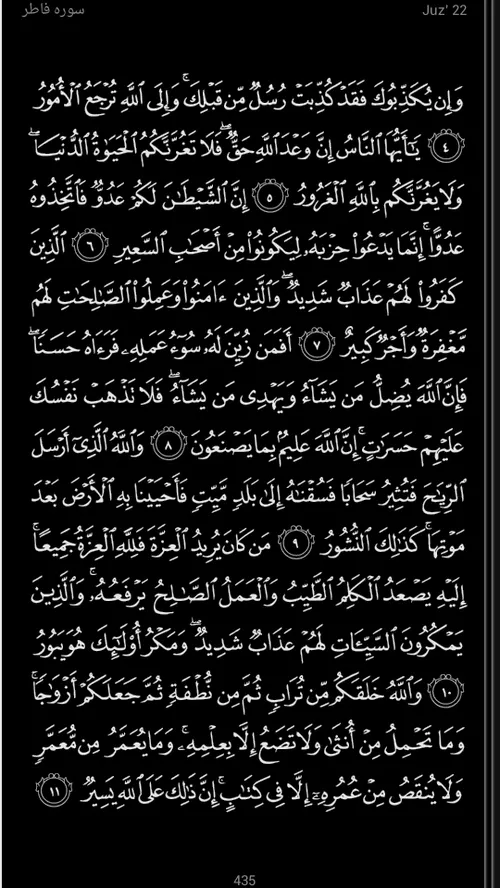 سورہ فاطر
Juz’ 22
وَإِن يُكَذِّبُوكَ فَقَدْ كُذِّبَتْ رُسُلٌ مِّن قَبْلِكَ ۚ وَإِلَى ٱللَّهِ تُرْجَعُ ٱلْأُمُورُ
٤ يَـٰٓأَيُّهَا ٱلنَّاسُ إِنَّ وَعْدَ ٱللَّهِ حَقٌّ ۖ فَلَا تَغُرَّنَّكُمُ ٱلْحَيَوٰةُ ٱلدُّنْيَا ۖ
وَلَا يَغُرَّنَّكُم بِٱللَّهِ ٱلْغَرُورُ ٥ إِنَّ ٱلشَّيْطَـٰنَ لَكُمْ عَدُوٌّ فَٱتَّخِذُوهُ
عَدُوًّا ۚ إِنَّمَا يَدْعُوا۟ حِزْبَهُۥ لِيَكُونُوا۟ مِنْ أَصْحَـٰبِ ٱلسَّعِيرِ ٦ ٱلَّذِينَ
كَفَرُوا۟ لَهُمْ عَذَابٌ شَدِيدٌ ۖ وَٱلَّذِينَ ءَامَنُوا۟ وَعَمِلُوا۟ ٱلصَّـٰلِحَـٰتِ لَهُم
مَّغْفِرَةٌ وَأَجْرٌ كَبِيرٌ ٧ أَفَمَن زُيِّنَ لَهُۥ سُوٓءُ عَمَلِهِۦ فَرَءَاهُ حَسَنًا ۖ
فَإِنَّ ٱللَّهَ يُضِلُّ مَن يَشَآءُ وَيَهْدِى مَن يَشَآءُ ۖ فَلَا تَذْهَبْ نَفْسُكَ
عَلَيْهِمْ حَسَرَٰتٍ ۚ إِنَّ ٱللَّهَ عَلِيمٌۢ بِمَا يَصْنَعُونَ ٨ وَٱللَّهُ ٱلَّذِىٓ أَرْسَلَ
ٱلرِّيَـٰحَ فَتُثِيرُ سَحَابًا فَسُقْنَـٰهُ إِلَىٰ بَلَدٍ مَّيِّتٍ فَأَحْيَيْنَا بِهِ ٱلْأَرْضَ بَعْدَ
مَوْتِهَا ۚ كَذَٰلِكَ ٱلنُّشُورُ ٩ مَن كَانَ يُرِيدُ ٱلْعِزَّةَ فَلِلَّهِ ٱلْعِزَّةُ جَمِيعًا ۚ
إِلَيْهِ يَصْعَدُ ٱلْكَلِمُ ٱلطَّيِّبُ وَٱلْعَمَلُ ٱلصَّـٰلِحُ يَرْفَعُهُۥ ۚ وَٱلَّذِينَ
يَمْكُرُونَ ٱلسَّيِّـَٔاتِ لَهُمْ عَذَابٌ شَدِيدٌ ۖ وَمَكْرُ أُو۟لَـٰٓئِكَ هُوَ يَبُورُ
١٠ وَٱللَّهُ خَلَقَكُم مِّن تُرَابٍ ثُمَّ مِن نُّطْفَةٍ ثُمَّ جَعَلَكُمْ أَزْوَٰجًا ۚ
وَمَا تَحْمِلُ مِنْ أُنثَىٰ وَلَا تَضَعُ إِلَّا بِعِلْمِهِۦ ۚ وَمَا يُعَمَّرُ مِن مُّعَمَّرٍ
وَلَا يُنقَصُ مِنْ عُمُرِهِۦٓ إِلَّا فِى كِتَـٰبٍ ۚ إِنَّ ذَٰلِكَ عَلَى ٱللَّهِ يَسِيرٌ ١١
435